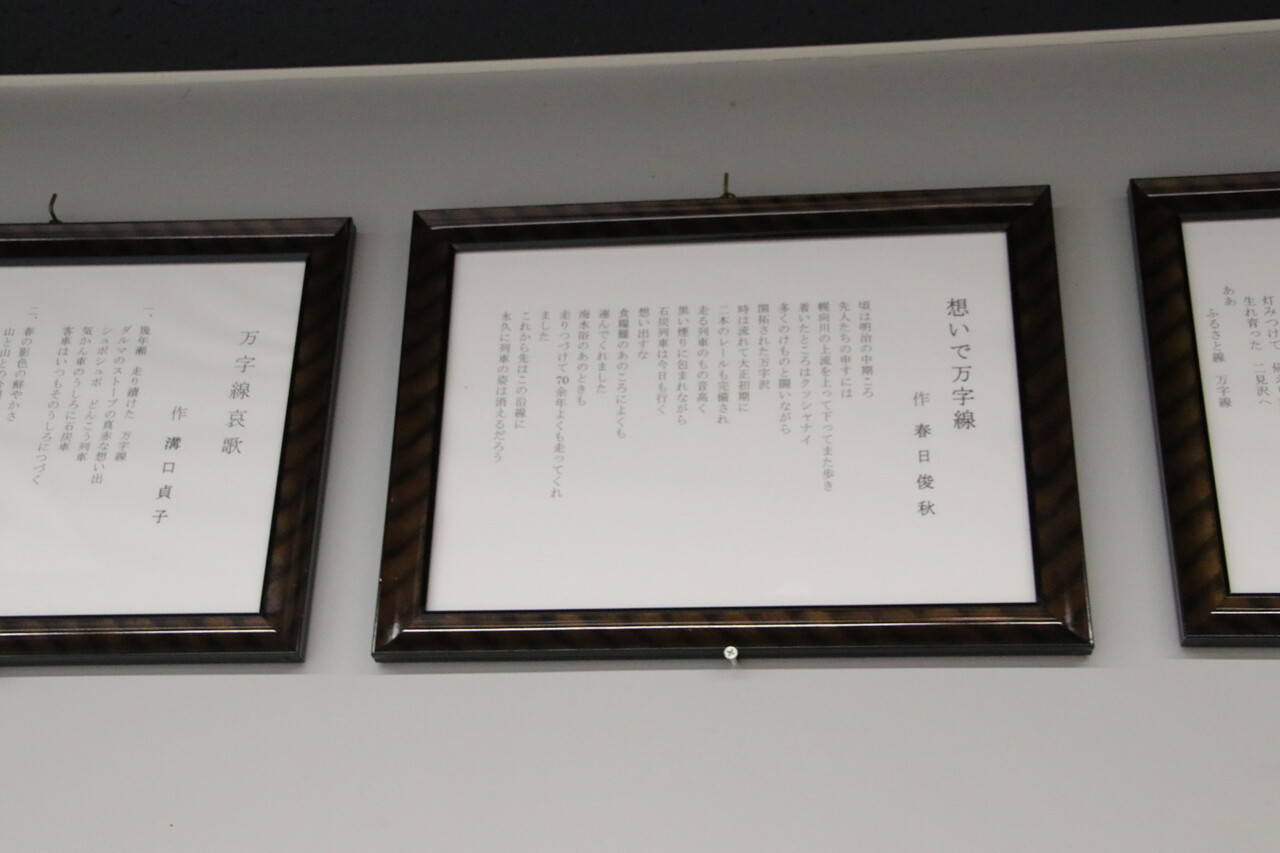 灯みつけて
生れ育った 二見沢へ
ああ ふるさと線 万字線
想いで万字線
作 春日俊秋
頃は明治の中期ころ
先人たちの申すには
幌向川の上流を上って下ってまた歩き
着いたところはクッシャナイ
多くのけものと闘いながら
開拓された万字沢
時は流れて大正初期に
二本のレールも完備され
走る列車のもの音高く
黒い煙りに包まれながら
石炭列車は今日も行く
想い出すな
食糧難のあのころによくも
運んでくれました
海水浴のあのときも
走りつづけて70余年よくも走ってくれ
ました
これから先はこの沿線に
永久に列車の姿は消えるだろう
万字線哀歌
作 溝口貞子
一、幾年瀬 走り續けた 万字線
ダルマのストーブの真赤な想い出
シュポシュポ どんこう列車
気かん車のうしろに石炭車
客車はいつもそのうしろにつづく
二、春の影色の鮮やかさ
山と山との